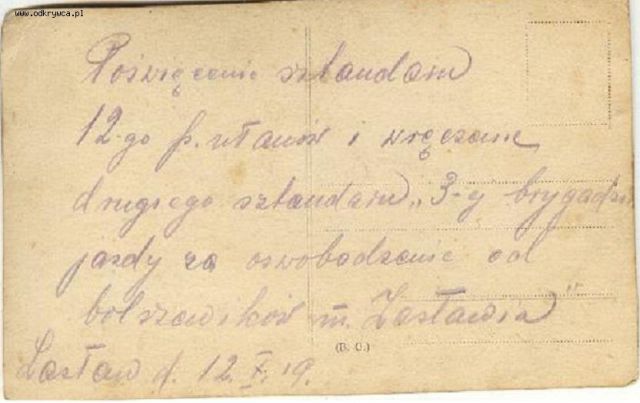 www.odkrywca.pl
Poświęcenie sztandaru
12-go p. ułanów i wręczenie
drugiego sztandaru "3-ej brygadzie
jazdy za oswobodzenie od
bolszewików m. Zasławia"
(B. C.)
Zasław d. 12. X. 19.